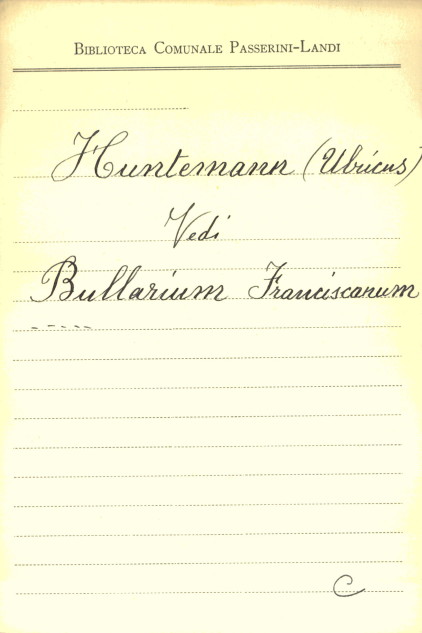 BIBLIOTECA COMUNALE PASSERINI-LANDI
Huntemann (Ulricus)
Vedi
Bullarium Franciscanum
C